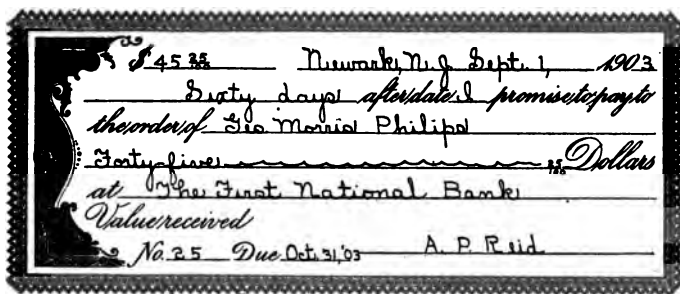 $ 45 25/100 Newark, N.J. Sept. 1, 1903
Sixty days after date I promise to pay to
the order of Geo Morris Philips
Forty-five 25/100 Dollars
at The First National Bank
Value received
No. 25 Due Oct. 31, '03 A. P. Reid